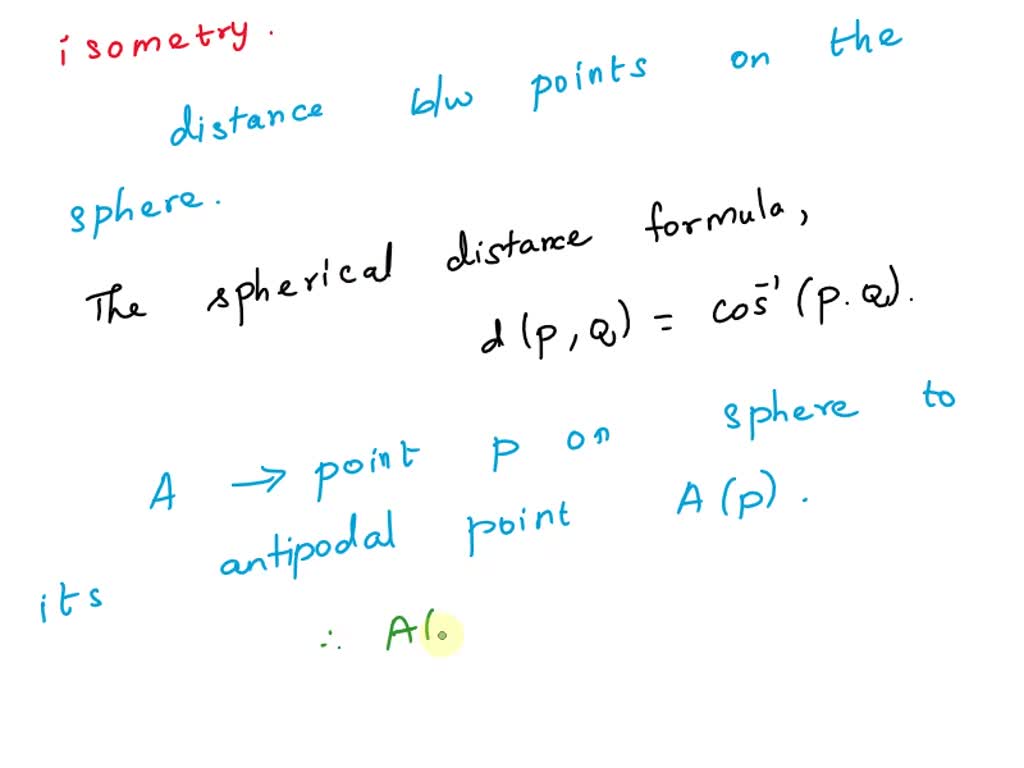 isometry.
distance b/w points on the
sphere.
The spherical distance formula,
d(p, Q) = cos⁻¹(p. Q).
A → point p on sphere to
its antipodal point A(p).
∴ A(